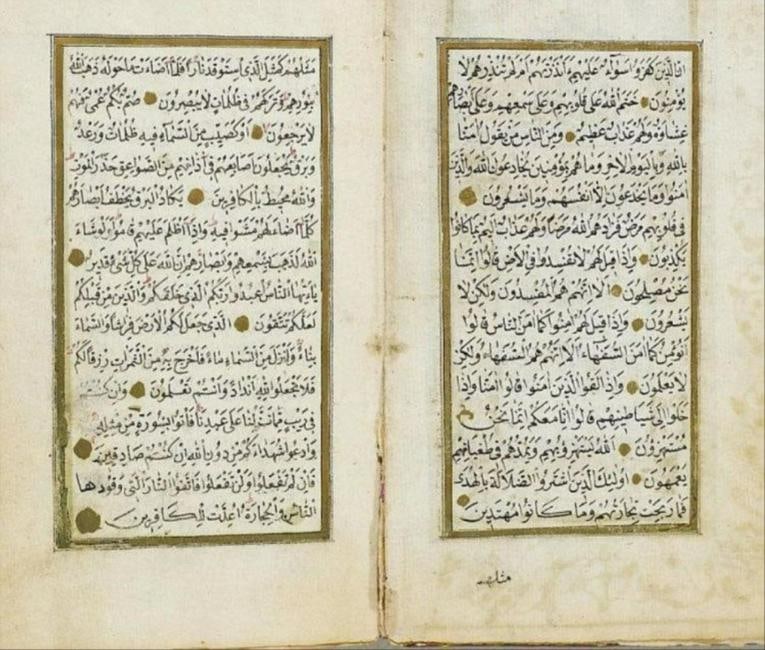 ان الذين كفروا سواء عليهم ءانذرتهم ام لم تنذرهم لا
يؤمنون ختم الله على قلوبهم وعلى سمعهم وعلى ابصارهم
غشاوة ولهم عذاب عظيم ومن الناس من يقول امنا
بالله وباليوم الاخر وما هم بمؤمنين يخادعون الله والذين
امنوا وما يخدعون الا انفسهم وما يشعرون
في قلوبهم مرض فزادهم الله مرضا ولهم عذاب اليم بما كانوا
يكذبون واذا قيل لهم لا تفسدوا في الارض قالوا انما
نحن مصلحون الا انهم هم المفسدون ولكن لا
يشعرون واذا قيل لهم امنوا كما امن الناس قالوا
انؤمن كما امن السفهاء الا انهم هم السفهاء ولكن
لا يعلمون واذا لقوا الذين امنوا قالوا امنا واذا
خلوا الى شياطينهم قالوا انا معكم انما نحن
مستهزؤن الله يستهزؤ بهم ويمدهم في طغيانهم
يعمهون اولئك الذين اشتروا الضلالة بالهدى
فما ربحت تجارتهم وما كانوا مهتدين
مثلهم
مثلهم كمثل الذي استوقد نارا فلما اضاءت ما حوله ذهب الله
بنورهم وتركهم في ظلمات لا يبصرون صم بكم عمي فهم
لا يرجعون او كصيب من السماء فيه ظلمات ورعد
وبرق يجعلون اصابعهم في اذانهم من الصواعق حذر الموت
والله محيط بالكافرين يكاد البرق يخطف ابصارهم
كلما اضاء لهم مشوا فيه واذا اظلم عليهم قاموا ولو شاء
الله لذهب بسمعهم وابصارهم ان الله على كل شئ قدير
يا ايها الناس اعبدوا ربكم الذي خلقكم والذين من قبلكم
لعلكم تتقون الذي جعل لكم الارض فراشا والسماء
بناء وانزل من السماء ماء فاخرج به من الثمرات رزقا لكم
فلا تجعلوا لله اندادا وانتم تعلمون وان كنتم
في ريب مما نزلنا على عبدنا فاتوا بسورة من مثله
وادعوا شهداءكم من دون الله ان كنتم صادقين
فان لم تفعلوا ولن تفعلوا فاتقوا النار التي وقودها
الناس والحجارة اعدت للكافرين